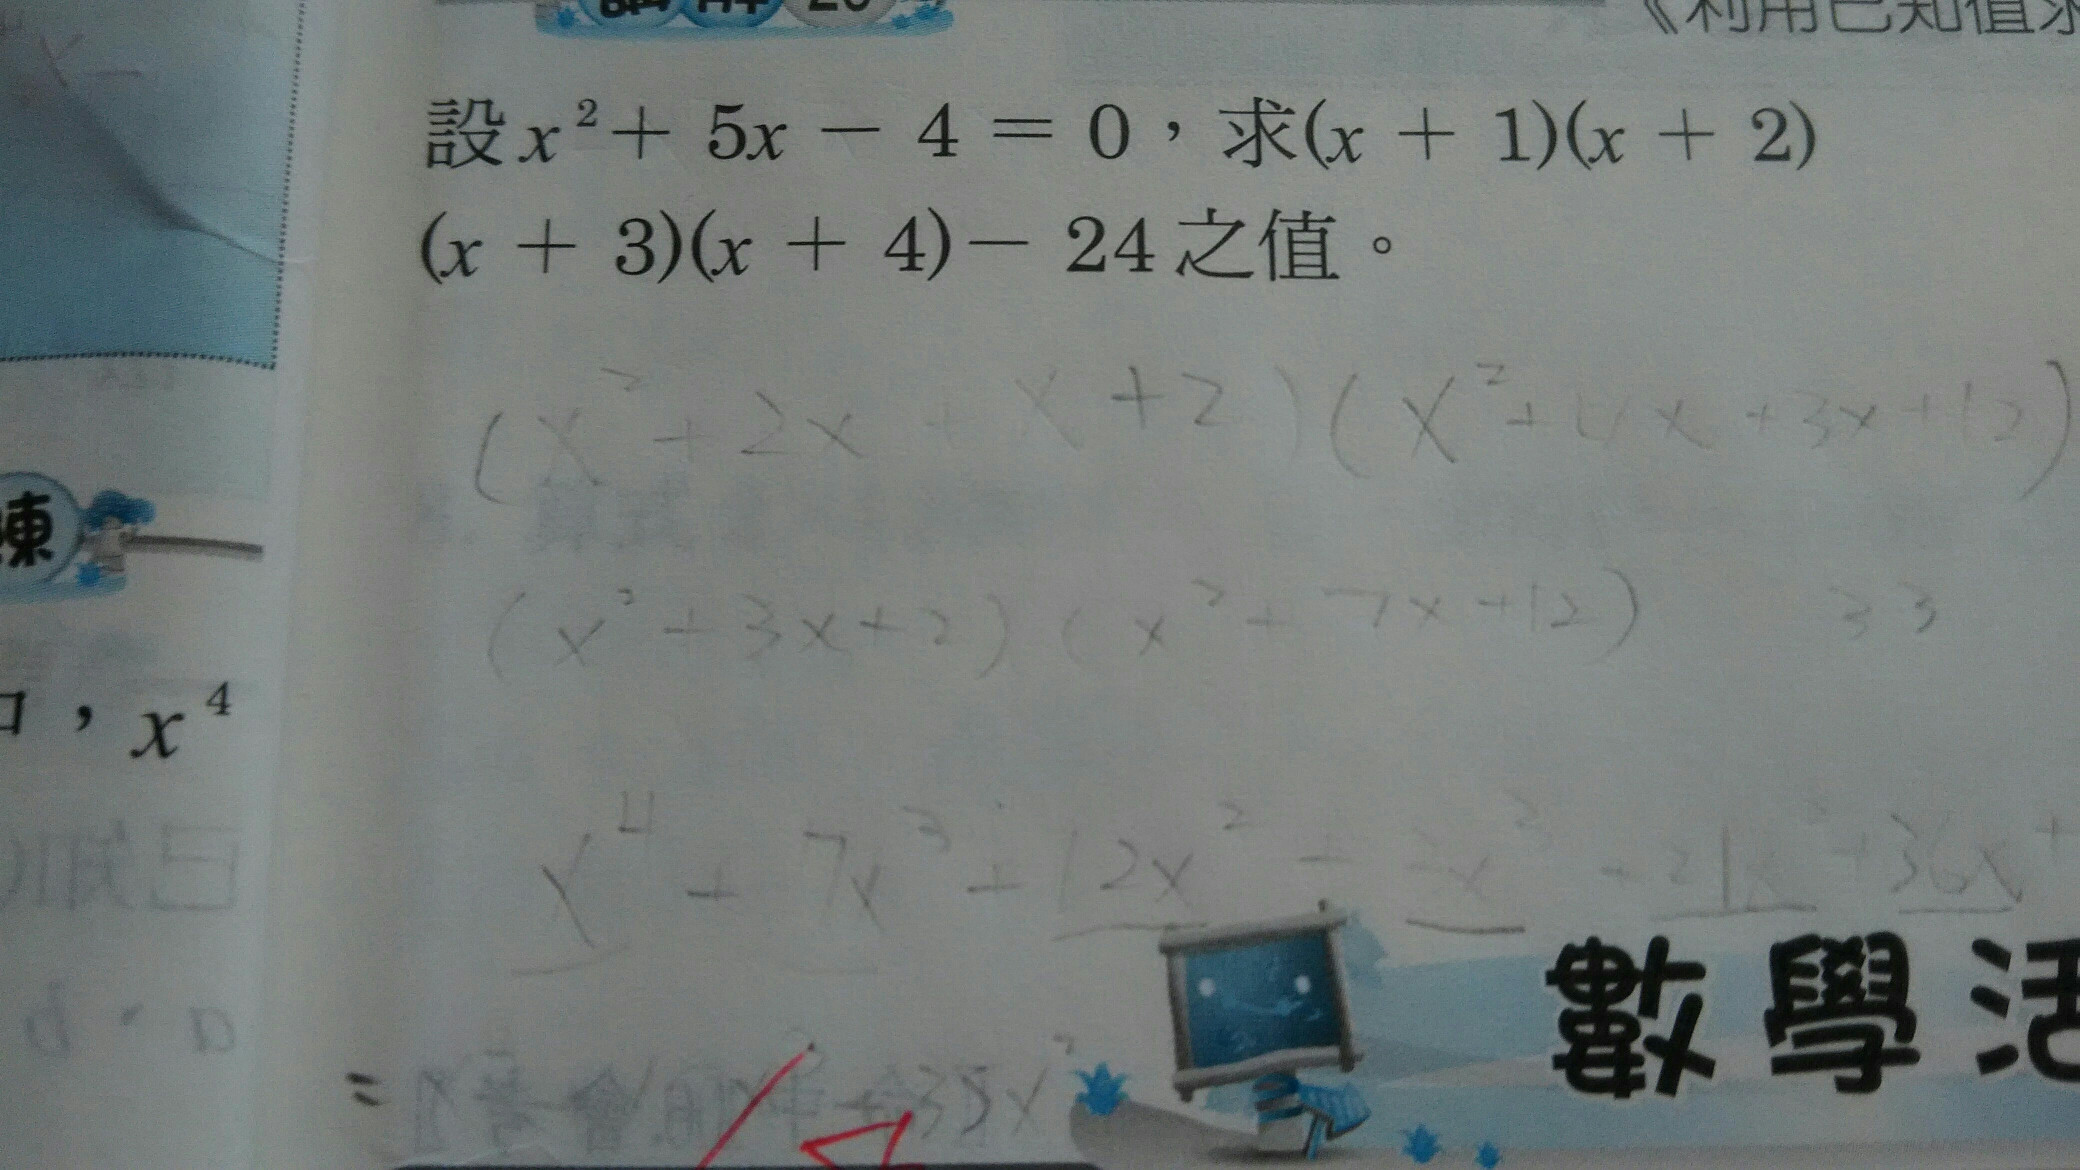 《利用已知值求
設x² + 5x - 4 = 0，求(x + 1)(x + 2)
(x + 3)(x + 4) - 24之值。
(x² + 2x + x + 2)(x² + 4x + 3x + 12)
練
(x² + 3x + 2)(x² + 7x + 12) 33
，x⁴
x⁴ + 7x³ + 12x² + 3x³ + 21x² + 36x +
數學活